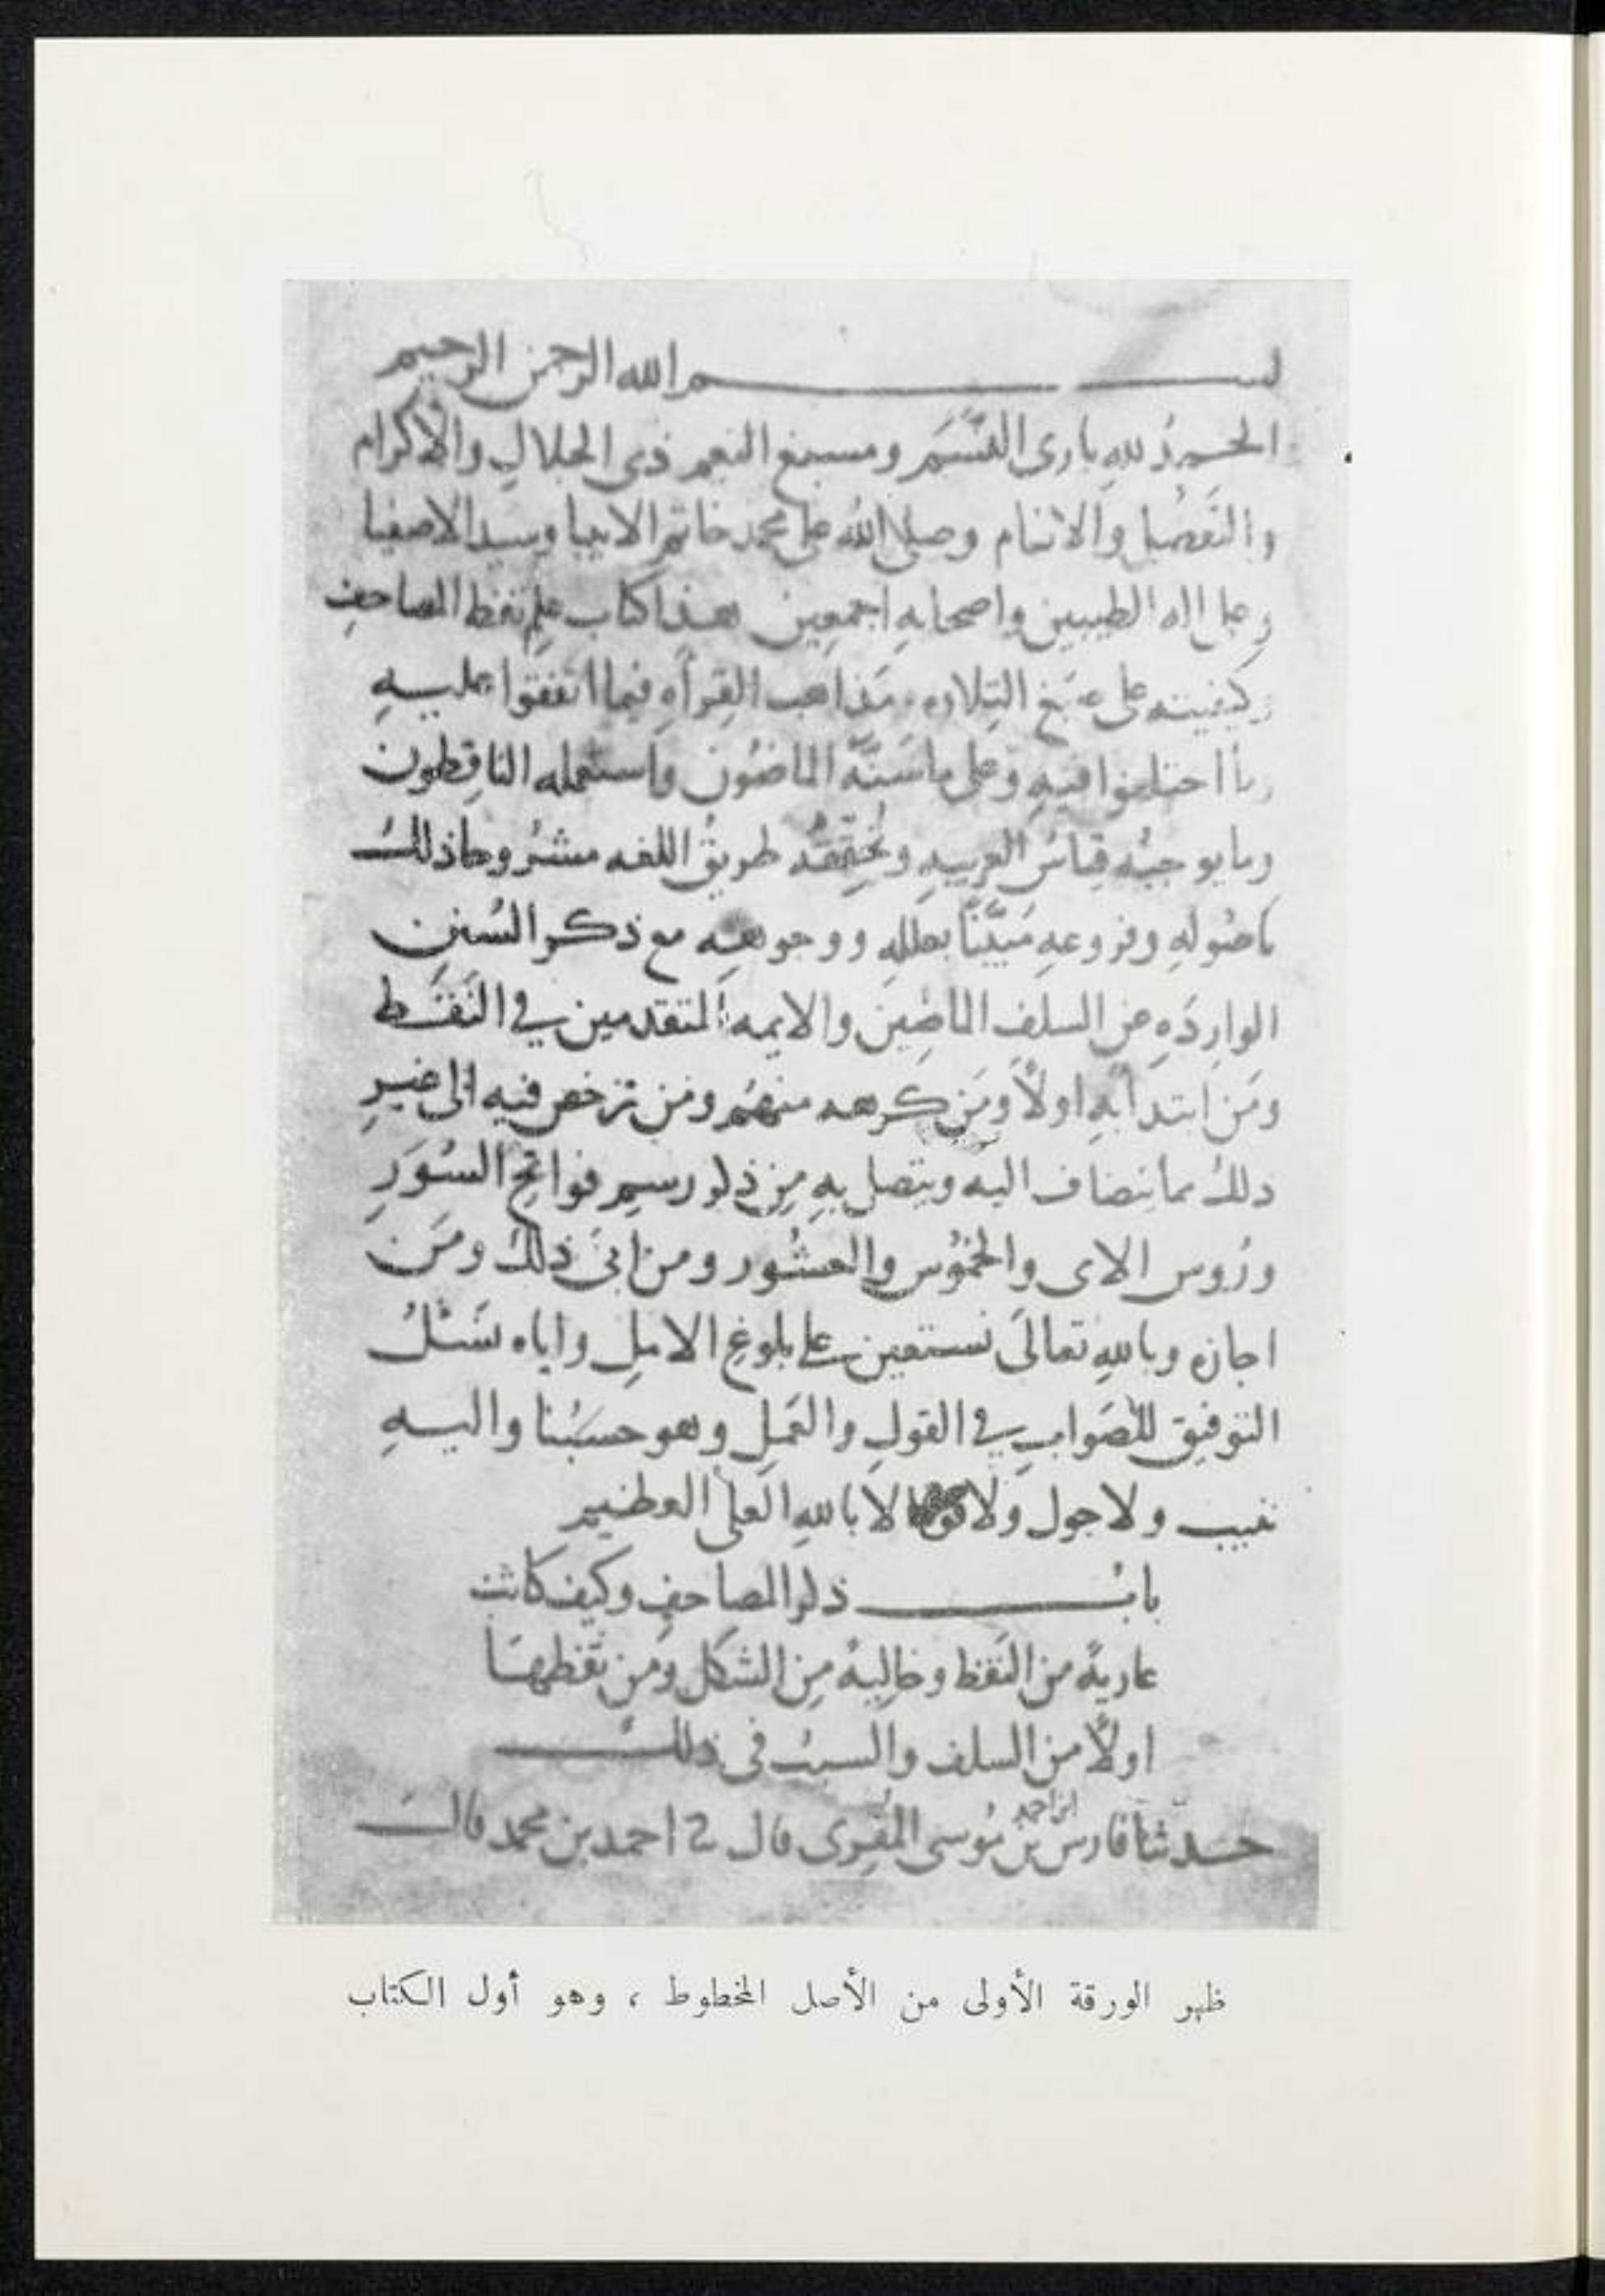 بسم الله الرحمن الرحيم
الحمدُ للهِ بارى النَّسَمِ ومسبغ النعم ذى الجلالِ والاكرام
والتفضيل والانعام وصلى اللهُ على محمد خاتم الانبيا وسيد الاصفيا
وعلى اله الطيبين واصحابهِ اجمعين هذا كتاب علم نقط المصاحفِ
وكيفيته على صيغ التلاوه ومَذاهب القرأه فيما اتفقوا عليهِ
وما اختلفوا فيهِ وعلى ما سَنَّه الماضُون واستعمله الناقِطون
وما يوجبُه قياسُ العربيهِ وتُحَقِّقُه طريقُ اللغه مشرُوحا ذلك
باصُولهِ وفروعهِ مَبيَّناً بعللهِ ووجوههِ مع ذكر السُننِ
الوارِدَهِ عن السلف الماضِينَ والايمه المتقدمين في النَقط
ومَن ابتدا بهِ اولاً ومَن كرهه منهُم ومَن ترخص فيه الى غيرِ
ذلكَ مما ينضاف اليه ويتصل بهِ مِن ذكر رسمِ فواتحِ السُوَرِ
ورُوس الاى والخمُوس والعشُور ومن ابىَ ذلكَ ومَن
اجازه وباللهِ تعالىَ نستعين على بلوغِ الاملِ واياه نسَئلُ
التوفيق للصَوابِ في القولِ والعَملِ وهو حسبُنا واليهِ
ننيب ولا حول ولا قوة الا باللهِ العلى العظيم
بابُ ذكر المصاحفِ وكيف كانت
عاريةً من النَقط وخاليةً مِن الشكل ومَن نقطها
اولاً من السلف والسببُ فى ذلكَ
حدثنا فارس بن احمد بن مُوسى المقرى قال نا احمد بن محمد قال
ظهر الورقة الأولى من الأصل المخطوط ، وهو أول الكتاب